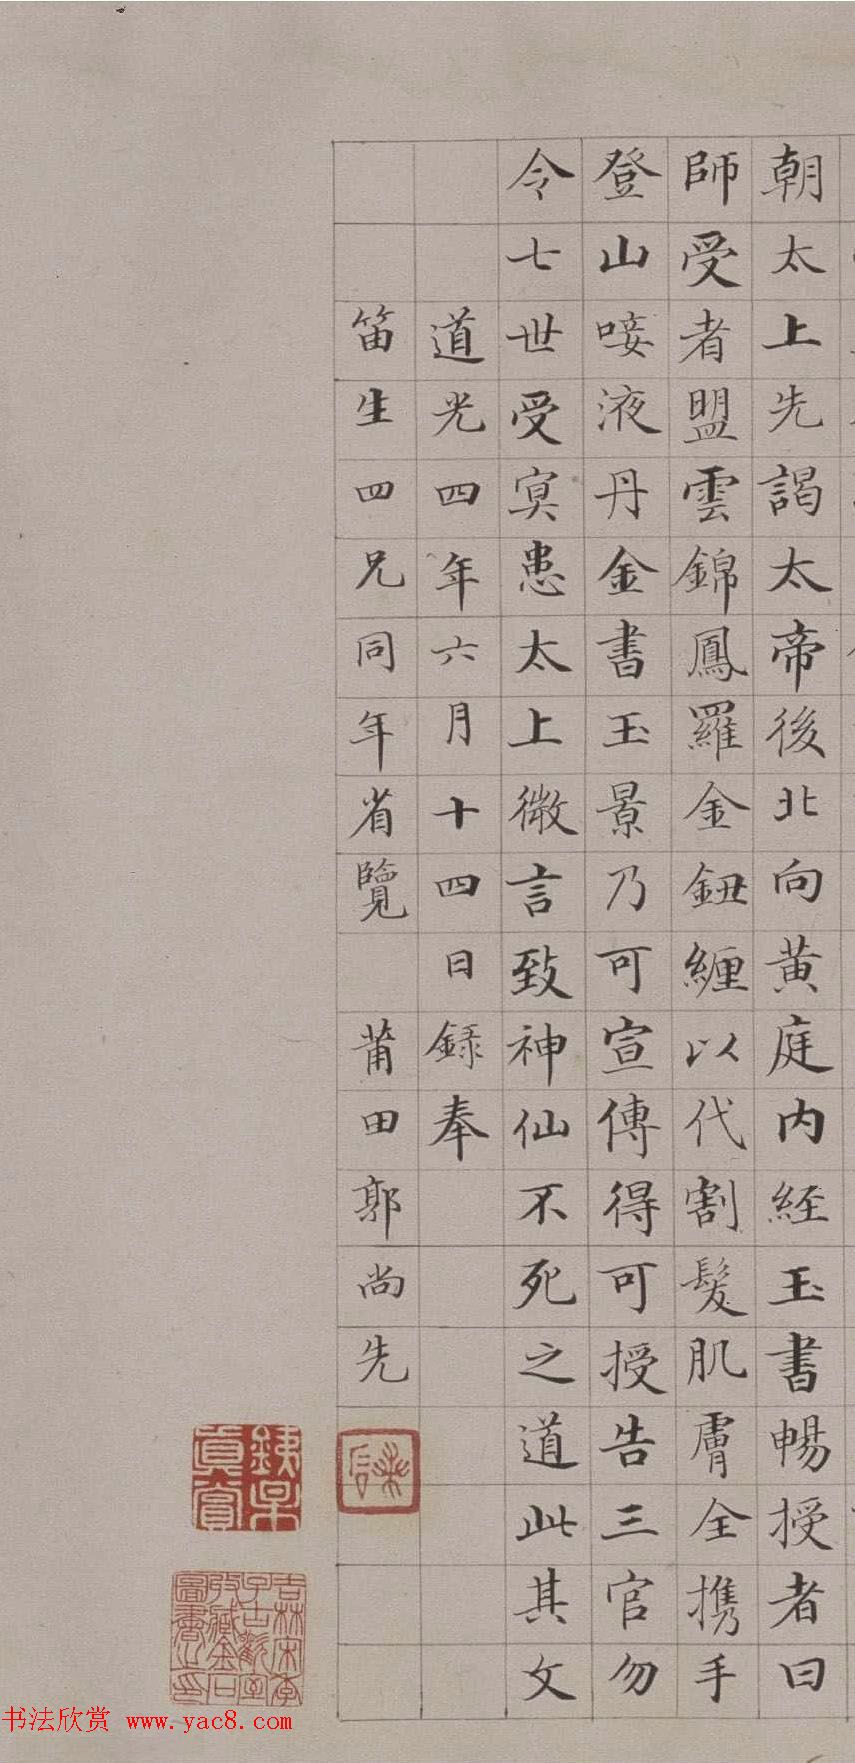 朝太上先謁太帝後北向黃庭內經玉書暢授者曰
師受者盟雲錦鳳羅金鈕纏以代割髮肌膚全携手
登山唼液丹金書玉景乃可宣傳得可授告三官勿
令七世受冥患太上微言致神仙不死之道此其文
道光四年六月十四日録奉
笛生四兄同年省覽 莆田郭尚先
书法欣赏 www.yac8.com